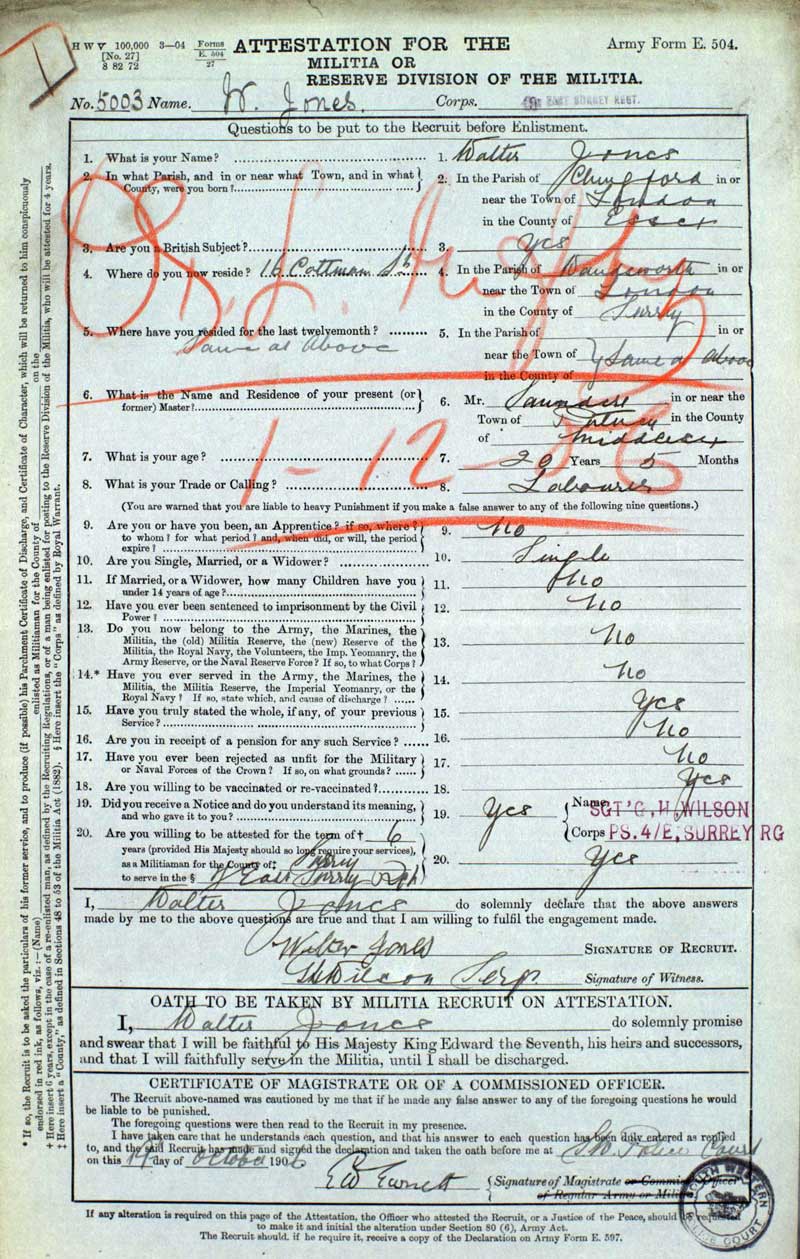 H W V 100,000 3—04 Forms E. 504 27
[No. 27]
8 82 72
ATTESTATION FOR THE
MILITIA OR
RESERVE DIVISION OF THE MILITIA.
Army Form E. 504.
No. 5003 Name. W. Jones. Corps. EAST SURREY REGT.
Questions to be put to the Recruit before Enlistment.
1. What is your Name? 1. Walter Jones
2. In what Parish, and in or near what Town, and in what County, were you born? 2. In the Parish of Chingford in or
near the Town of London
in the County of Essex
3. Are you a British Subject? 3. Yes
4. Where do you now reside? 16 Cottman St 4. In the Parish of Wandsworth in or
near the Town of London
in the County of Surry
5. Where have you resided for the last twelvemonth? 5. In the Parish of in or
Same as Above near the Town of Same as Above
in the County of
6. What is the Name and Residence of your present (or former) Master? 6. Mr. Saunders in or near the
Town of Putney in the County
of Middlesex
7. What is your age? 7. 20 Years 5 Months
8. What is your Trade or Calling? 8. Labourer
1-12-06
(You are warned that you are liable to heavy Punishment if you make a false answer to any of the following nine questions.)
9. Are you or have you been, an Apprentice? if so, where? 9. No
to whom? for what period? and, when did, or will, the period
expire?
10. Are you Single, Married, or a Widower? 10. Single
11. If Married, or a Widower, how many Children have you under 14 years of age? 11. No
12. Have you ever been sentenced to imprisonment by the Civil Power? 12. No
13. Do you now belong to the Army, the Marines, the
Militia, the (old) Militia Reserve, the (new) Reserve of
the Militia, the Royal Navy, the Volunteers, the Imp. Yeomanry, the
Army Reserve, or the Naval Reserve Force? If so, to what Corps? 13. No
14.* Have you ever served in the Army, the Marines, the
Militia, the Militia Reserve, the Imperial Yeomanry, or the
Royal Navy? If so, state which, and cause of discharge? 14. No
15. Have you truly stated the whole, if any, of your previous Service? 15. Yes
16. Are you in receipt of a pension for any such Service? 16. No
17. Have you ever been rejected as unfit for the Military
or Naval Forces of the Crown? If so, on what grounds? 17. No
18. Are you willing to be vaccinated or re-vaccinated? 18. Yes
19. Did you receive a Notice and do you understand its meaning, and who gave it to you? 19. Yes Name SGT C, H, WILSON
Corps PS. 4/E, SURREY RG
20. Are you willing to be attested for the term of† 6
years (provided His Majesty should so long require your services),
as a Militiaman for the County of‡ Surry
to serve in the § East Surrey Rgt 20. Yes
I, Walter Jones do solemnly declare that the above answers
made by me to the above questions are true and that I am willing to fulfil the engagement made.
Walter Jones SIGNATURE OF RECRUIT.
Wilson Serg Signature of Witness.
OATH TO BE TAKEN BY MILITIA RECRUIT ON ATTESTATION.
I, Walter Jones do solemnly promise
and swear that I will be faithful to His Majesty King Edward the Seventh, his heirs and successors,
and that I will faithfully serve in the Militia, until I shall be discharged.
CERTIFICATE OF MAGISTRATE OR OF A COMMISSIONED OFFICER.
The Recruit above-named was cautioned by me that if he made any false answer to any of the foregoing questions he would
be liable to be punished.
The foregoing questions were then read to the Recruit in my presence.
I have taken care that he understands each question, and that his answer to each question has been duly entered as replied
to, and the said Recruit has made and signed the declaration and taken the oath before me at S.W. Police Court
on this day of October 1906
Signature of Magistrate or Commissioned Officer
of Regular Army or Militia
SOUTH WESTERN POLICE COURT
If any alteration is required on this page of the Attestation, the Officer who attested the Recruit, or a Justice of the Peace, should be requested
to make it and initial the alteration under Section 80 (6), Army Act.
The Recruit should, if he require it, receive a copy of the Declaration on Army Form E. 597.
* If so, the Recruit is to be asked the particulars of his former service, and to produce (if possible) his Parchment Certificate of Discharge, and Certificate of Character, which will be returned to him conspicuously
endorsed in red ink, as follows, viz.:—(Name) enlisted as Militiaman for the County of on the
† Here insert 6 years, except in the case of a re-enlisted man, as defined by the Recruiting Regulations, or of a man being enlisted for posting to the Reserve Division of the Militia, who will be attested for 4 years.
‡ Here insert a "County," as defined in Sections 48 to 53 of the Militia Act (1882). § Here insert the "Corps" as defined by Royal Warrant.